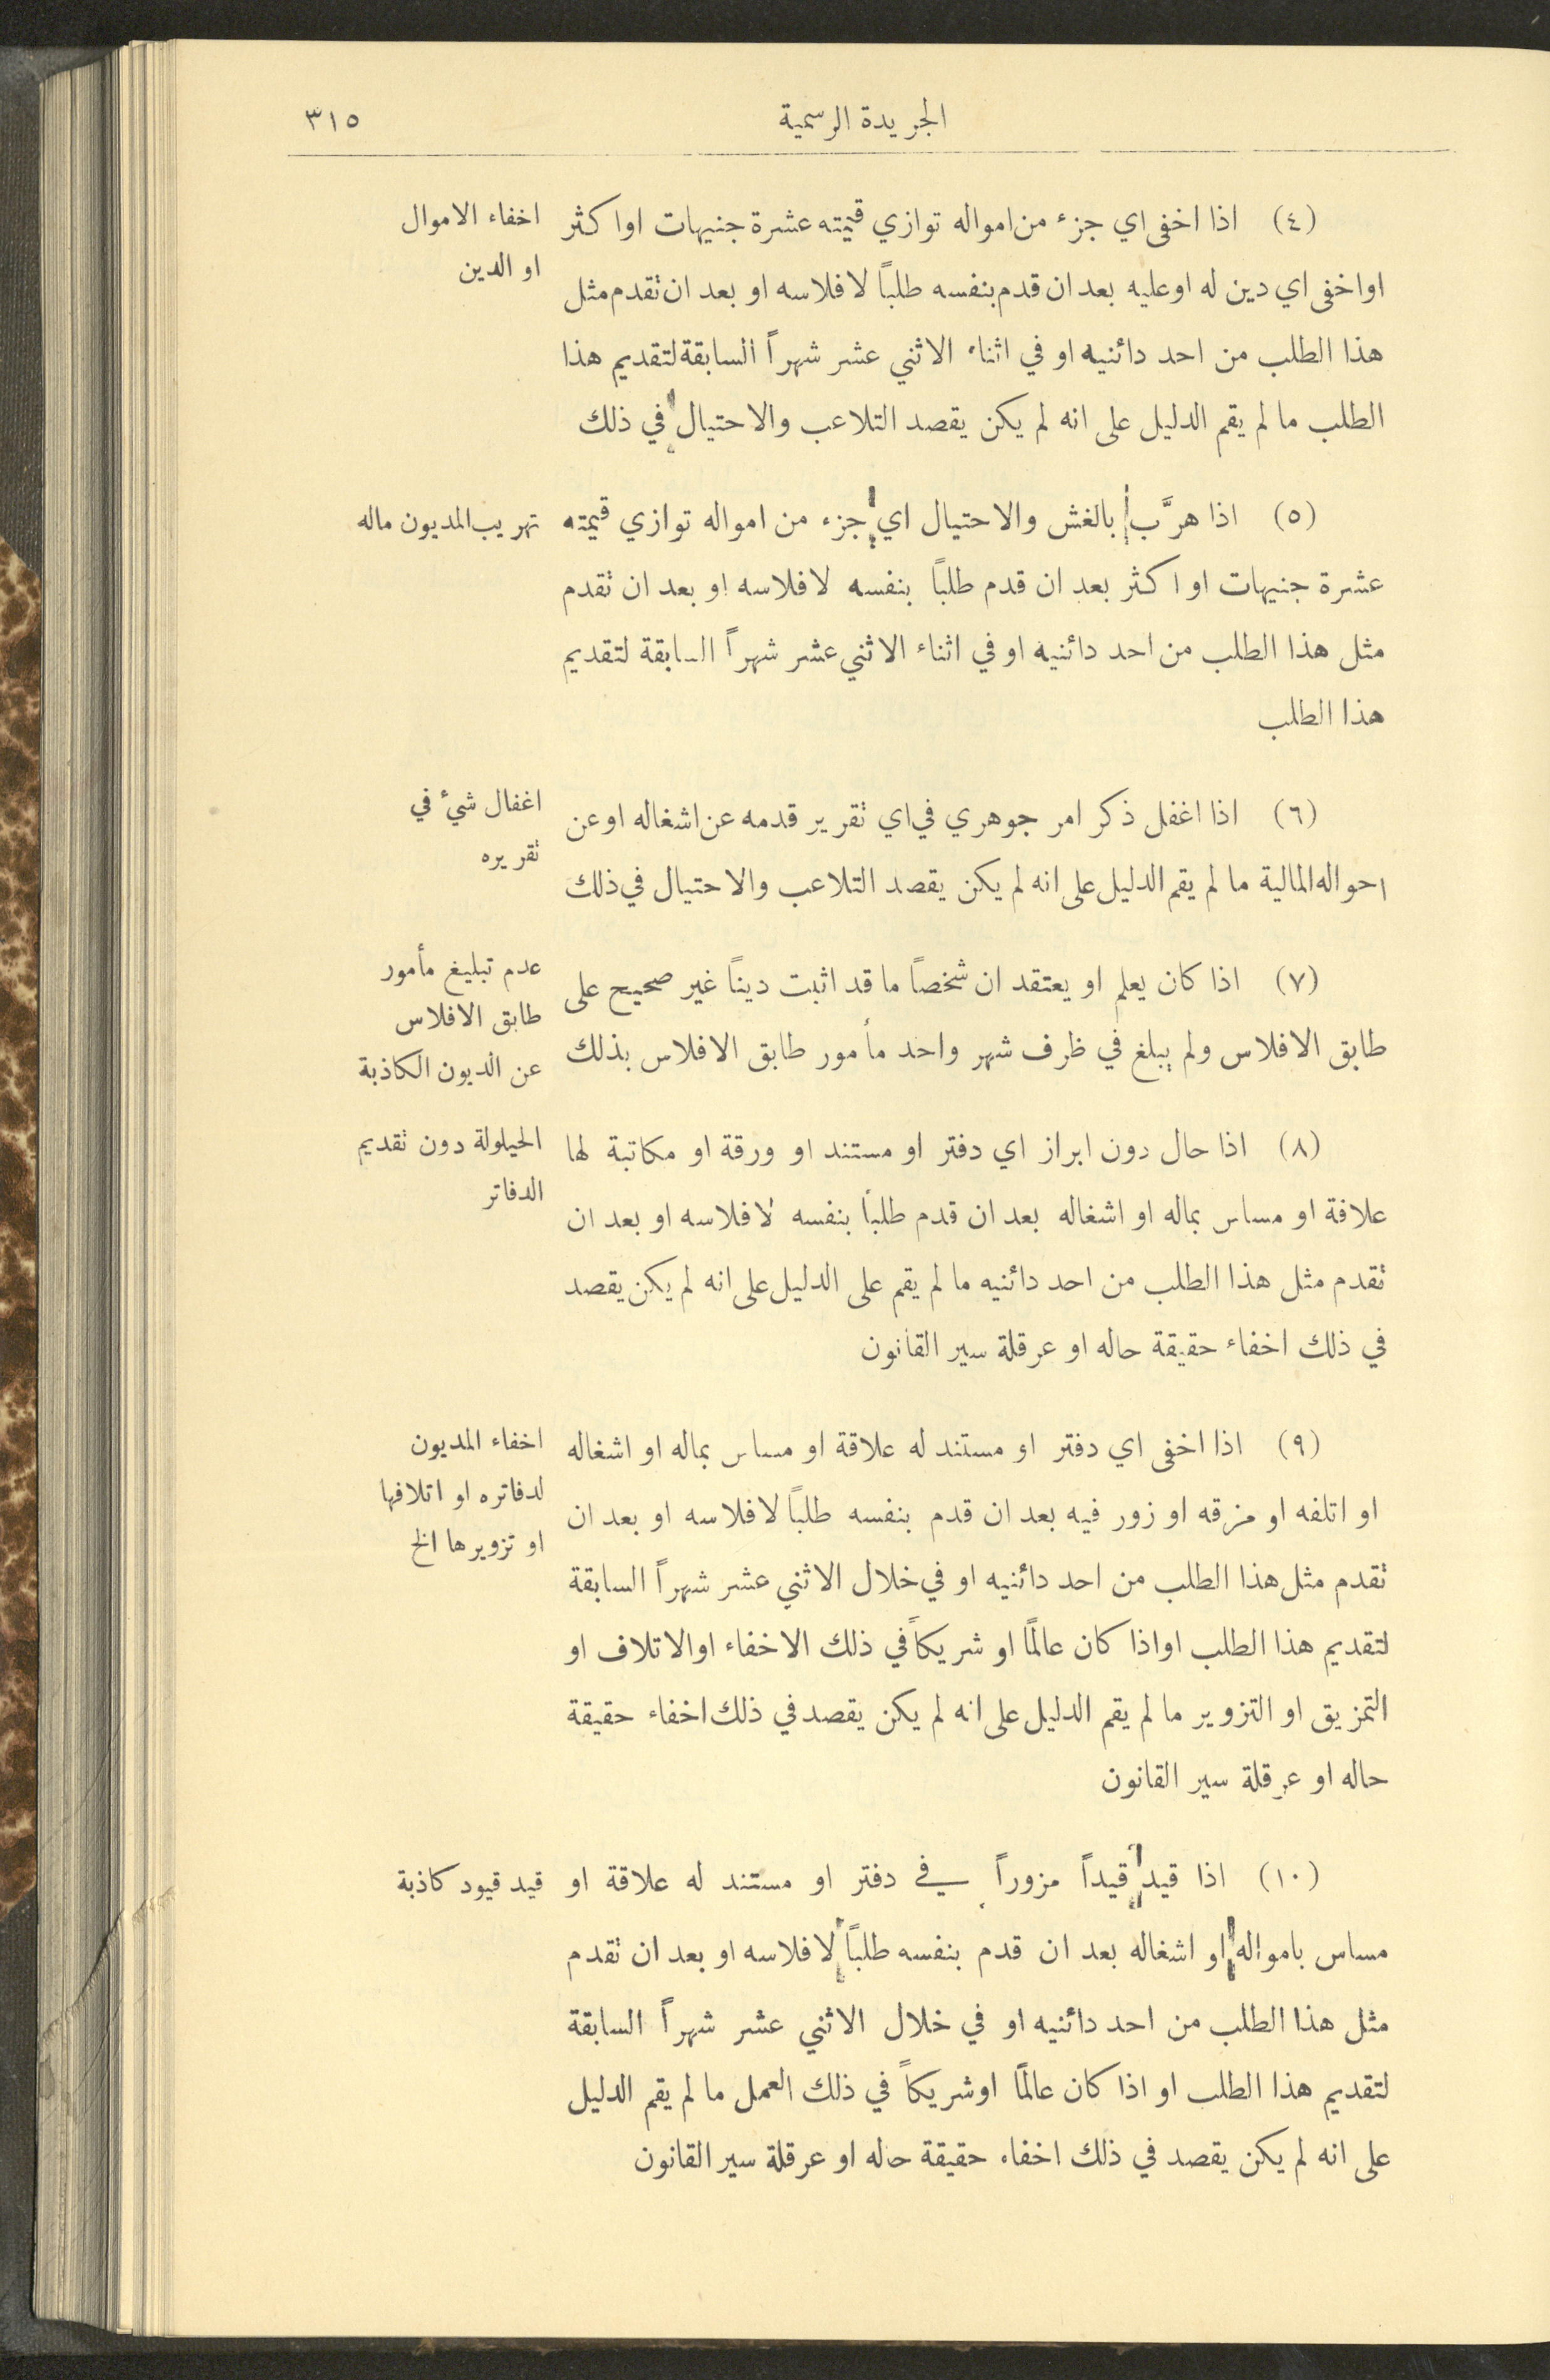 الجريدة الرسمية
٣١٥
(٤) اذا اخفى اي جزء من امواله توازي قيمته عشرة جنيهات او اكثر
او اخفى اي دين له او عليه بعد ان قدم بنفسه طلباً لافلاسه او بعد ان تقدم مثل
هذا الطلب من احد دائنيه او في اثناء الاثني عشر شهراً السابقة لتقديم هذا
الطلب ما لم يقم الدليل على انه لم يكن يقصد التلاعب والاحتيال في ذلك
اخفاء الاموال
او الدين
(٥) اذا هرَّب بالغش والاحتيال اي جزء من امواله توازي قيمته
عشرة جنيهات او اكثر بعد ان قدم طلباً بنفسه لافلاسه او بعد ان تقدم
مثل هذا الطلب من احد دائنيه او في اثناء الاثني عشر شهراً السابقة لتقديم
هذا الطلب
تهريب المديون ماله
(٦) اذا اغفل ذكر امر جوهري في اي تقرير قدمه عن اشغاله او عن
احواله المالية ما لم يقم الدليل على انه لم يكن يقصد التلاعب والاحتيال في ذلك
اغفال شيء في
تقريره
(٧) اذا كان يعلم او يعتقد ان شخصاً ما قد اثبت ديناً غير صحيح على
طابق الافلاس ولم يبلغ في ظرف شهر واحد مأمور طابق الافلاس بذلك
عدم تبليغ مأمور
طابق الافلاس
عن الديون الكاذبة
(٨) اذا حال دون ابراز اي دفتر او مستند او ورقة او مكاتبة لها
علاقة او مساس بماله او اشغاله بعد ان قدم طلباً بنفسه لافلاسه او بعد ان
تقدم مثل هذا الطلب من احد دائنيه ما لم يقم على الدليل على انه لم يكن يقصد
في ذلك اخفاء حقيقة حاله او عرقلة سير القانون
الحيلولة دون تقديم
الدفاتر
(٩) اذا اخفى اي دفتر او مستند له علاقة او مساس بماله او اشغاله
او اتلفه او مزقه او زور فيه بعد ان قدم بنفسه طلباً لافلاسه او بعد ان
تقدم مثل هذا الطلب من احد دائنيه او في خلال الاثني عشر شهراً السابقة
لتقديم هذا الطلب او اذا كان عالماً او شريكاً في ذلك الاخفاء او الاتلاف او
التمزيق او التزوير ما لم يقم الدليل على انه لم يكن يقصد في ذلك اخفاء حقيقة
حاله او عرقلة سير القانون
اخفاء المديون
لدفاتره او اتلافها
او تزويرها الخ
(١٠) اذا قيد قيداً مزوراً في دفتر او مستند له علاقة او
مساس بامواله او اشغاله بعد ان قدم بنفسه طلباً لافلاسه او بعد ان تقدم
مثل هذا الطلب من احد دائنيه او في خلال الاثني عشر شهراً السابقة
لتقديم هذا الطلب او اذا كان عالماً او شريكاً في ذلك العمل ما لم يقم الدليل
على انه لم يكن يقصد في ذلك اخفاء حقيقة حاله او عرقلة سير القانون
قيد قيود كاذبة